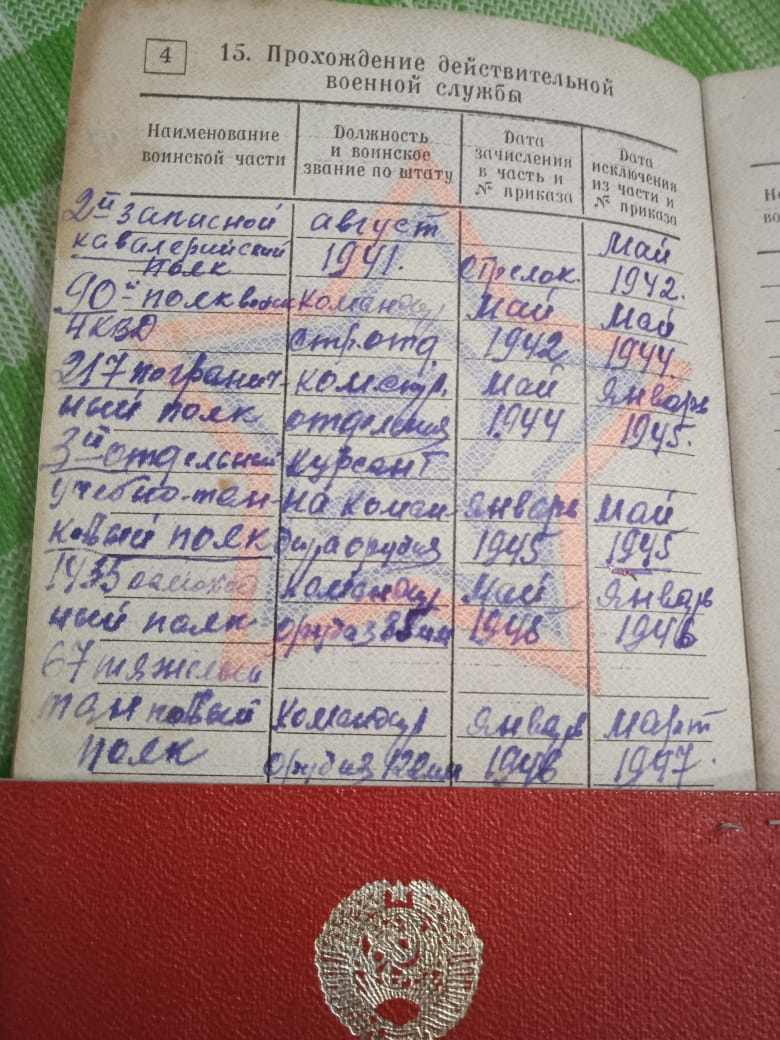 4
15. Прохождение действительной
военной службы
Наименование воинской части
Должность и воинское звание по штату
Дата зачисления в часть и № приказа
Дата исключения из части и № приказа
2й запасной август
кавалерийский 1941. стрелок. Май
полк 1942.
90й полк войск командир Май Май
НКВД стр. отд. 1942 1944
217 погранич- ком. стр. Май Январь
ный полк отделения 1944 1945.
3й отдельный курсант
учебно-тан- на коман- январь Май
ковый полк дира орудия 1945 1945
1435 самоход командир Май Январь
ный полк орудия 85мм 1945 1946
67 тяжелый
танковый командир январь март
полк орудия 122мм 1946 1947.